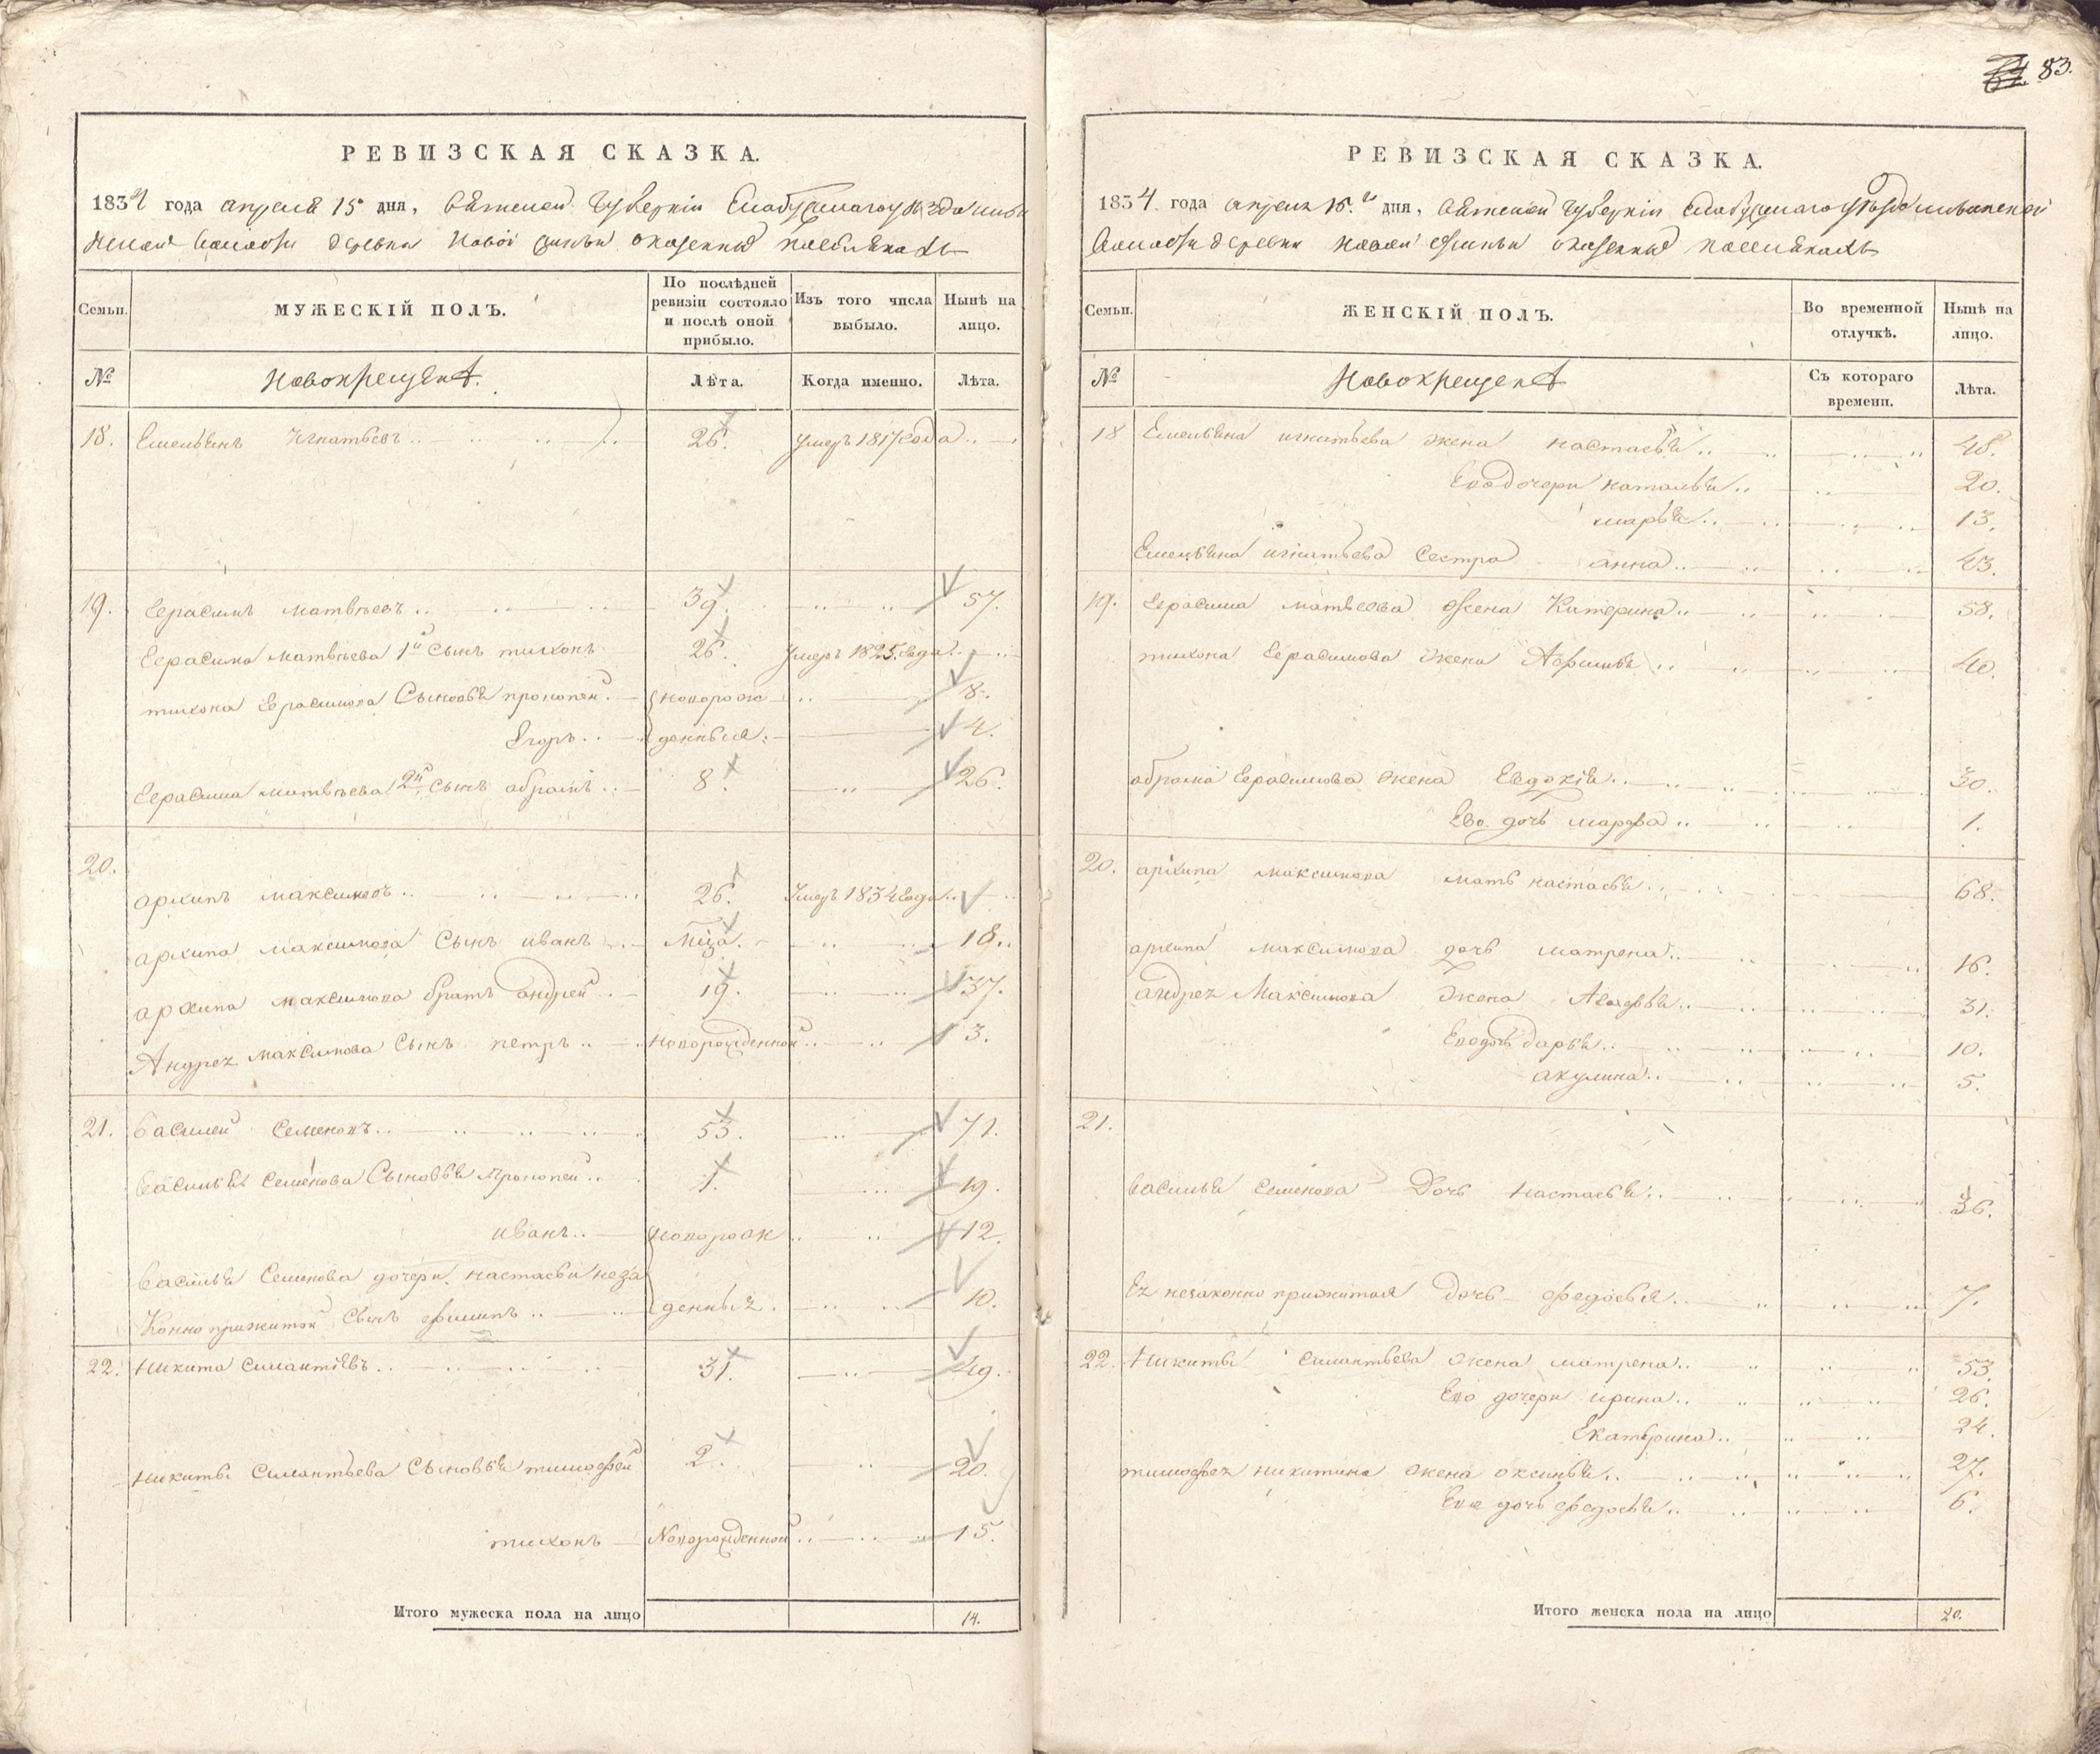 83.
РЕВИЗСКАЯ СКАЗКА.
1834 года апреля 15 дня, Вятской Губернии Елабужскаго уезда
волости деревни Новой о казенных поселянахъ
Семьи. МУЖЕСКІЙ ПОЛЪ. По послѣдней ревизіи состояло и послѣ оной прибыло. Изъ того числа выбыло. Нынѣ на лицо.
№ Новокрещен Лѣта. Когда именно. Лѣта.
18. Емельянъ Игнатьевъ 26. Умеръ 1817 года
19. Герасимъ Матвѣевъ 39. 57.
Герасима Матвѣева 1й Сынъ тихонъ 26. Умеръ 1825. года
тихона Герасимова Сыновья прокопей новорож 8.
Егоръ денныя 4.
Герасима Матвѣева 2й Сынъ абрамъ 8. 26.
20.
архипъ максимовъ 26. Умеръ 1834 года
архипа максимова Сынъ иванъ 18.
архипа максимова братъ андрей 19. 37.
Андрея максимова Сынъ петръ новорожденной 3.
21. Василей Семеновъ 53. 71.
Василья Семенова Сыновья прокопей 1. 19.
иванъ новорож 12.
Василья Семенова дочери настасьи неза
Конно прижитой Сынъ филипъ денныя 10.
22. Никита Силантьевъ 31. 49.
Никиты Силантьева Сыновья тимофей 2. 20.
тихонъ Новорожденной 15.
Итого мужеска пола на лицо 14.
РЕВИЗСКАЯ СКАЗКА.
1834 года апреля 15. дня, Вятской Губернии Елабужскаго уезда
волости деревни новой о казенных поселянахъ
Семьи. ЖЕНСКІЙ ПОЛЪ. Во временной отлучкѣ. Нынѣ на лицо.
№ Новокрещен Съ котораго времени. Лѣта.
18 Емельяна игнатьева жена настасья 48.
Ево дочери наталья 20.
марья 13.
Емельяна игнатьева Сестра анна 43.
19. Герасима матвеева жена Катерина 58.
тихона Герасимова жена Афимья 40.
абрама Герасимова жена Евдокія 30.
Ево дочь марфа 1.
20. архипа максимова мать настасья 68.
архипа максимова дочь матрена 16.
андрея Максимова жена Авдотья 31.
Ево дочь дарья 10.
акулина 5.
21.
Василья Семенова Дочь настасья 36.
Ея незаконно прижитая дочь федосья 7.
22. Никиты силантьева жена матрена 53.
Ево дочери ирина 26.
Екатерина 24.
тимофея никитина жена оксинья 27.
Ево дочь федосья 6.
Итого женска пола на лицо 20.